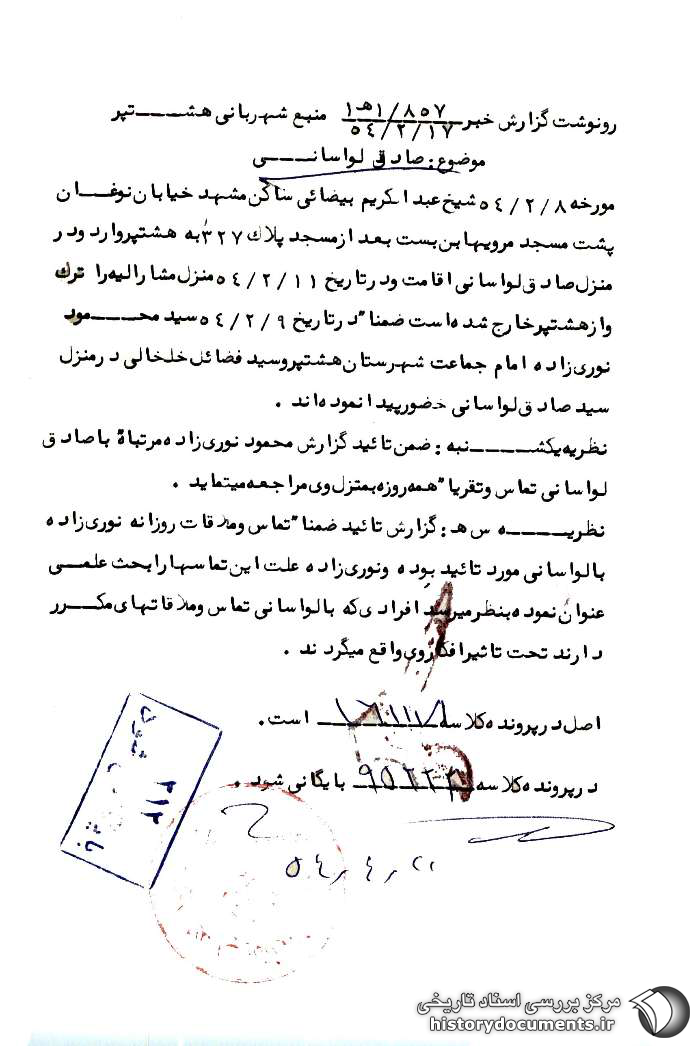 رونوشت گزارش خبر ۸۵۷/۱ه۱ منبع شهربانی هشتپر
۵۴/۲/۱۷
موضوع: صادق لواسانی
مورخه ۵۴/۲/۸ شیخ عبدالکریم بیضائی ساکن مشهد خیابان نوغان
پشت مسجد مرویها بن بست بعد از مسجد پلاك ۳۲۷ به هشتپر وارد و در
منزل صادق لواسانی اقامت و در تاریخ ۵۴/۲/۱۱ منزل مشارالیه را ترك
و از هشتپر خارج شده است ضمنا" در تاریخ ۵۴/۲/۹ سید محمود
نوری زاده امام جماعت شهرستان هشتپر و سید فضائل خلخالی در منزل
سید صادق لواسانی حضور پیدا نموده اند .
نظریه یکشنبه : ضمن تائید گزارش محمود نوری زاده مرتباً با صادق
لواسانی تماس و تقریا" همه روزه بمنزل وی مراجعه مینماید .
نظریه س هـ : گزارش تائید ضمنا" تماس و ملاقات روزانه نوری زاده
با لواسانی مورد تائید بوده و نوری زاده علت این تماسها را بحث علمی
عنوان نموده بنظر میرسد افرادی که با لواسانی تماس و ملاقاتهای مکرر
دارند تحت تاثیر افکار وی واقع میگردند .
اصل در پرونده کلاسه ۱۶۱۱۷ است .
در پرونده کلاسه بایگانی شود .
۳۱۲
۵۴,۴,۲۲
مرکز بررسی اسناد تاریخی
historydocuments.ir